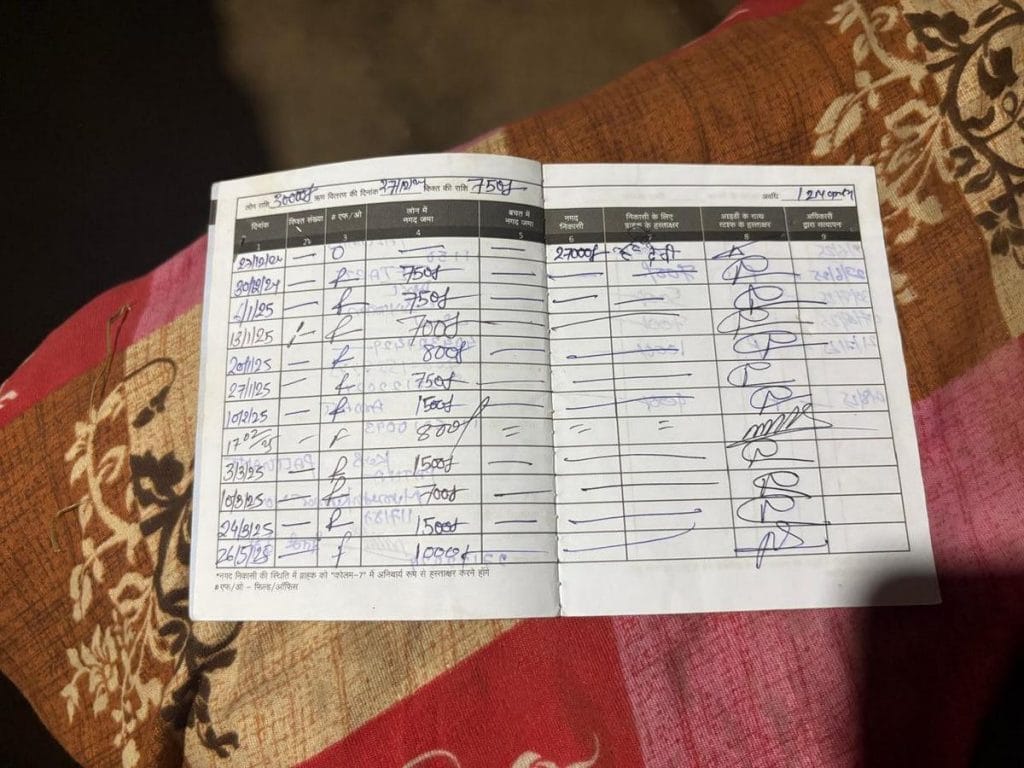 लोन राशि 30000/- ऋण वितरण की दिनांक 27/12/24 किश्त की राशि 750/- अवधि
दिनांक किश्त संख्या # एफ/ओ लोन में नगद जमा बचत में नगद जमा नगद निकासी निकासी के लिए ग्राहक के हस्ताक्षर आइडी के साथ स्टाफ के हस्ताक्षर अधिकारी द्वारा सत्यापन
1 2 3 4 5 6 7 8 9
27/12/24 — O — — 27000/- देवी
30/12/24 — F 750/- — —
1/25 — F 750/- — — —
13/1/25 F 700/- — — —
20/1/25 — F 800/- — — —
27/1/25 — F 750/- — — —
10/2/25 — F 1500/- — — —
17/02/25 F 800/- = = =
3/3/25 — F 1500/- — — —
10/3/25 — F 700/- — — —
24/3/25 — F 1500/- — — —
26/5/25 — F 1000/- — — —
*नगद निकासी की स्थिति में ग्राहक को "कोलम-7" में अनिवार्य रूप से हस्ताक्षर करने होंगे
# एफ/ओ - फिल्ड/ऑफिस